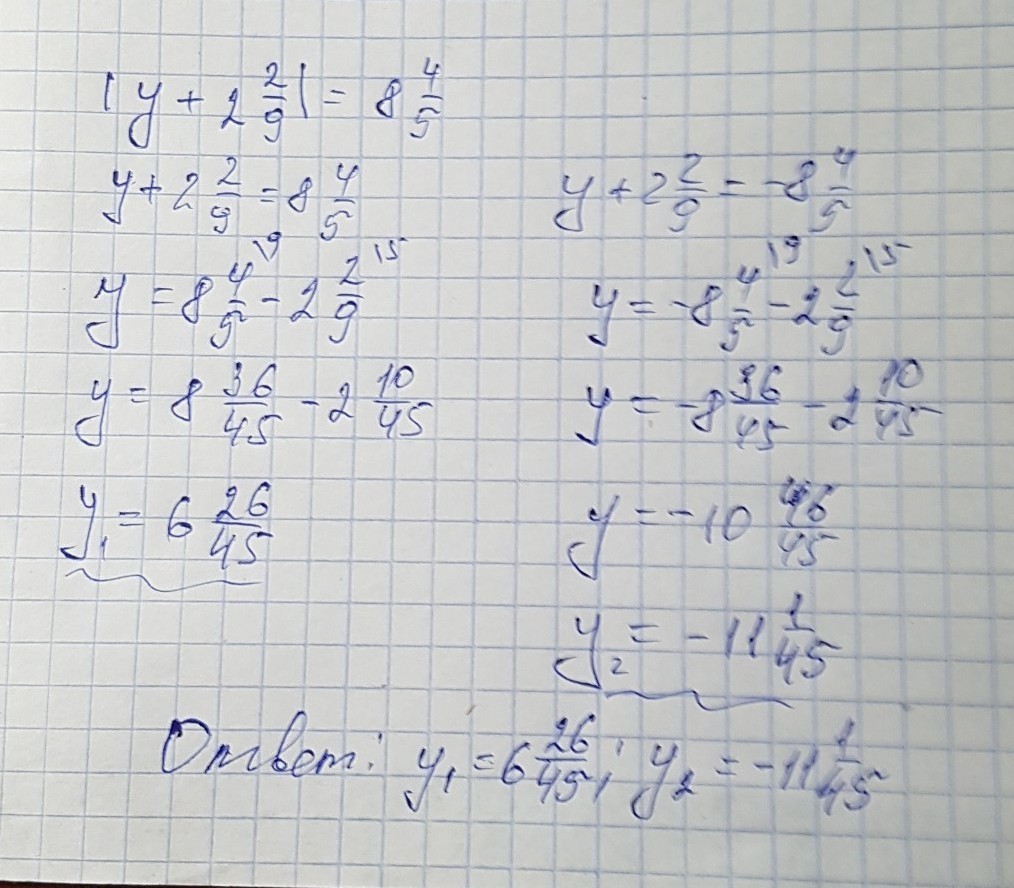 |y + 2 2/9| = 8 4/5
y + 2 2/9 = 8 4/5
y = 8 4/5 \9 - 2 2/9 \5
y = 8 36/45 - 2 10/45
y₁ = 6 26/45
y + 2 2/9 = -8 4/5
y = -8 4/5 \9 - 2 2/9 \5
y = -8 36/45 - 2 10/45
y = -10 46/45
y₂ = -11 1/45
Ответ: y₁ = 6 26/45; y₂ = -11 1/45